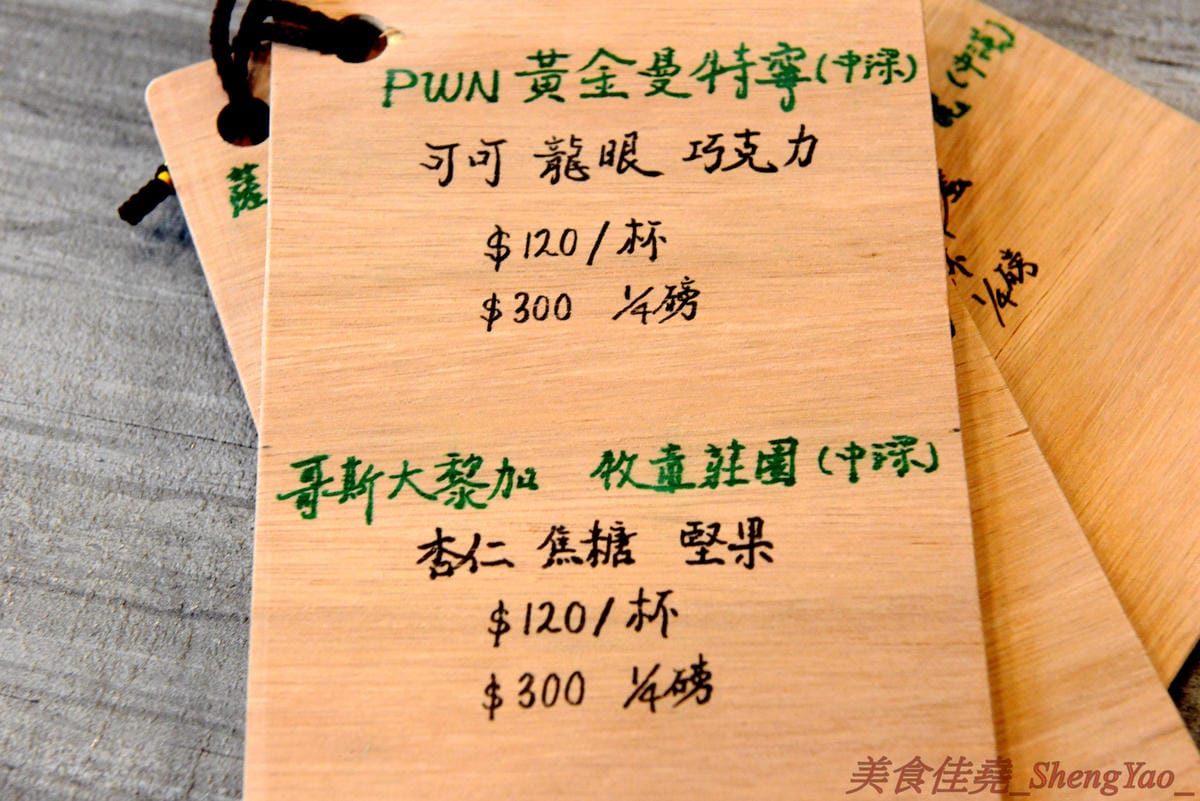 PWN 黃金曼特寧(中深)
可可 龍眼 巧克力
$120/杯
$300 ¼磅
哥斯大黎加 牧童莊園(中深)
杏仁 焦糖 堅果
$120/杯
$300 ¼磅
薩
¼磅
美食佳堯_ShengYao_